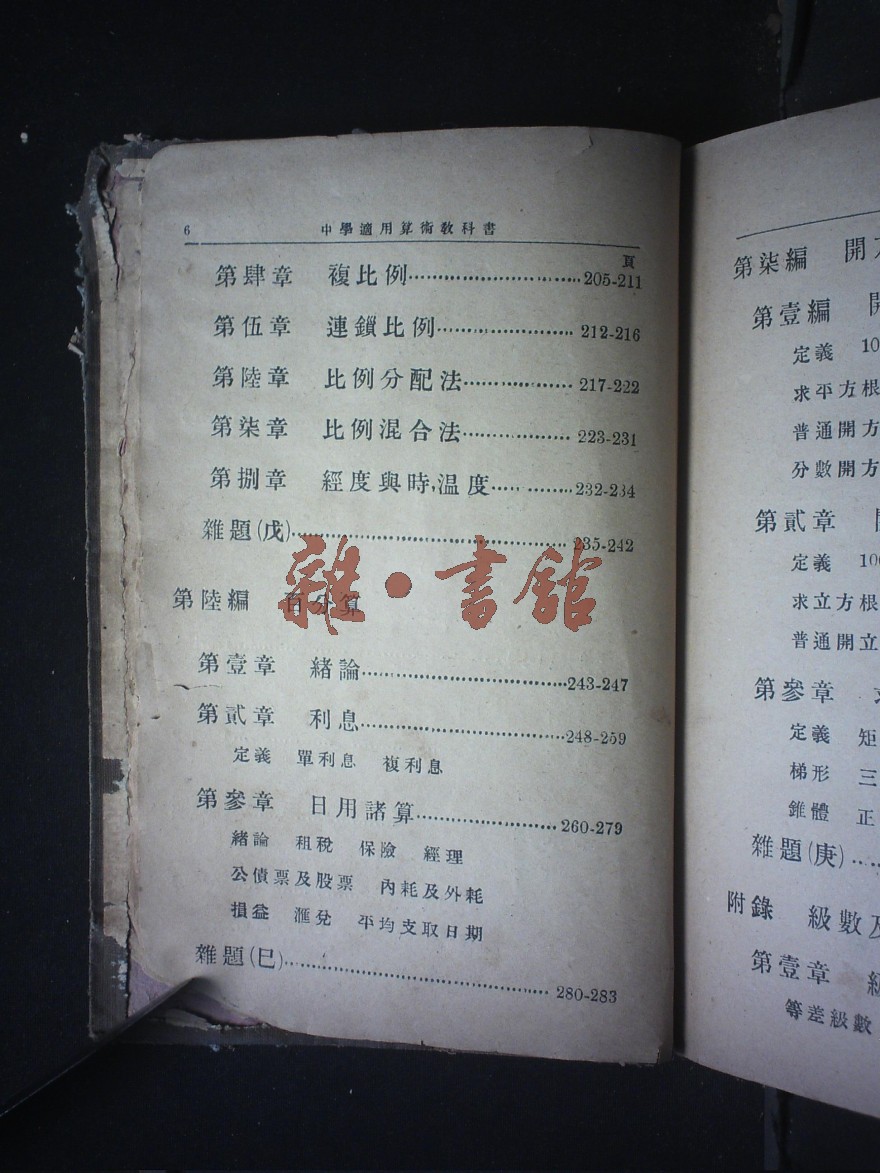 6 中學適用算術敎科書
頁
第肆章 複比例……………………205-211
第伍章 連鎖比例………………212-216
第陸章 比例分配法……………217-222
第柒章 比例混合法……………223-231
第捌章 經度與時,溫度…………232-234
雜題(戊)…………………………235-242
第陸編 百分算
雜·書館
第壹章 緒論……………………243-247
第貳章 利息……………………248-259
定義 單利息 複利息
第參章 日用諸算………………260-279
緒論 租稅 保險 經理
公債票及股票 內耗及外耗
損益 滙兌 平均支取日期
雜題(巳)…………………………280-283
第柒編 開
第壹編
定義 10
求平方根
普通開方
分數開方
第貳章
定義 10
求立方根
普通開立
第參章
定義 矩
梯形 三
錐體 正
雜題(庚)…
附錄 級數及
第壹章 級
等差級數